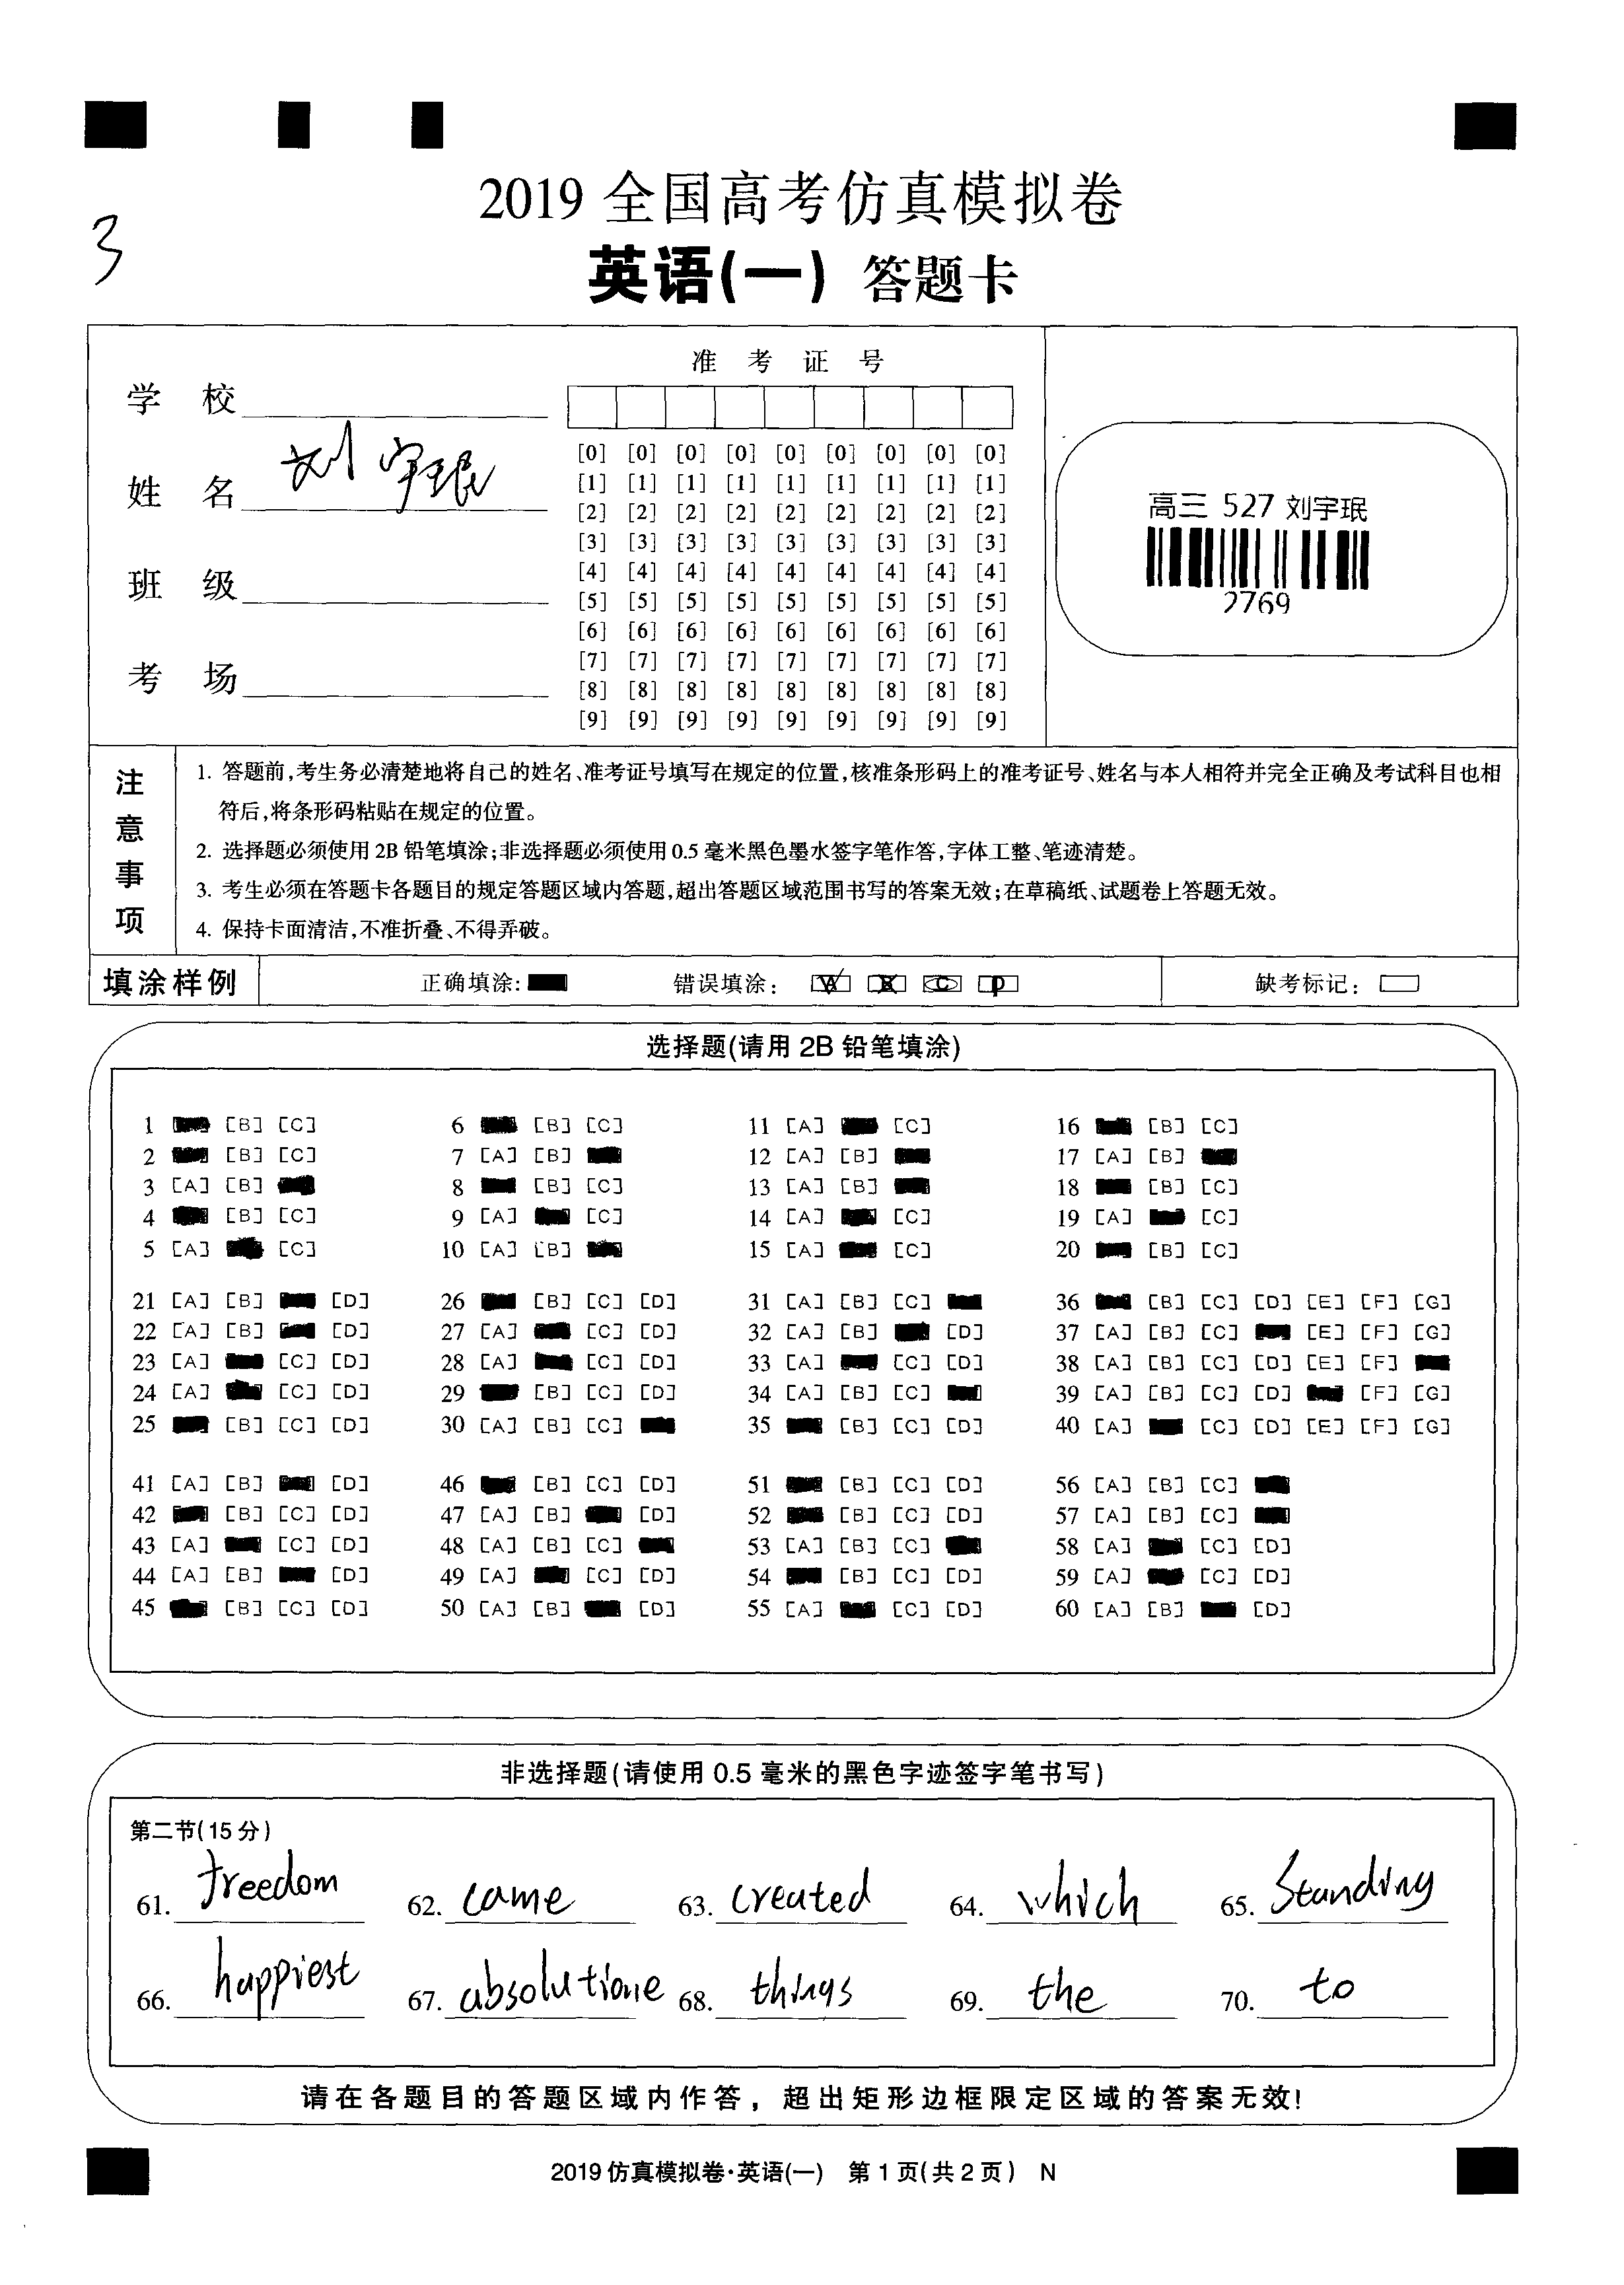 2019 全国高考仿真模拟卷
3
英语(一) 答题卡
准 考 证 号
学 校
姓 名 刘宇珉
班 级
考 场
[0] [0] [0] [0] [0] [0] [0] [0] [0]
[1] [1] [1] [1] [1] [1] [1] [1] [1]
[2] [2] [2] [2] [2] [2] [2] [2] [2]
[3] [3] [3] [3] [3] [3] [3] [3] [3]
[4] [4] [4] [4] [4] [4] [4] [4] [4]
[5] [5] [5] [5] [5] [5] [5] [5] [5]
[6] [6] [6] [6] [6] [6] [6] [6] [6]
[7] [7] [7] [7] [7] [7] [7] [7] [7]
[8] [8] [8] [8] [8] [8] [8] [8] [8]
[9] [9] [9] [9] [9] [9] [9] [9] [9]
高三 527 刘宇珉
2769
注意事项
1. 答题前,考生务必清楚地将自己的姓名、准考证号填写在规定的位置,核准条形码上的准考证号、姓名与本人相符并完全正确及考试科目也相
符后,将条形码粘贴在规定的位置。
2. 选择题必须使用 2B 铅笔填涂;非选择题必须使用 0.5 毫米黑色墨水签字笔作答,字体工整、笔迹清楚。
3. 考生必须在答题卡各题目的规定答题区域内答题,超出答题区域范围书写的答案无效;在草稿纸、试题卷上答题无效。
4. 保持卡面清洁,不准折叠、不得弄破。
填涂样例 正确填涂: 错误填涂: A B C D 缺考标记:
选择题(请用 2B 铅笔填涂)
1 [B] [C] 6 [B] [C] 11 [A] [C] 16 [B] [C]
2 [B] [C] 7 [A] [B] 12 [A] [B] 17 [A] [B]
3 [A] [B] 8 [B] [C] 13 [A] [B] 18 [B] [C]
4 [B] [C] 9 [A] [C] 14 [A] [C] 19 [A] [C]
5 [A] [C] 10 [A] [B] 15 [A] [C] 20 [B] [C]
21 [A] [B] [D] 26 [B] [C] [D] 31 [A] [B] [C] 36 [B] [C] [D] [E] [F] [G]
22 [A] [B] [D] 27 [A] [C] [D] 32 [A] [B] [D] 37 [A] [B] [C] [E] [F] [G]
23 [A] [C] [D] 28 [A] [C] [D] 33 [A] [C] [D] 38 [A] [B] [C] [D] [E] [F]
24 [A] [C] [D] 29 [B] [C] [D] 34 [A] [B] [C] 39 [A] [B] [C] [D] [F] [G]
25 [B] [C] [D] 30 [A] [B] [C] 35 [B] [C] [D] 40 [A] [C] [D] [E] [F] [G]
41 [A] [B] [D] 46 [B] [C] [D] 51 [B] [C] [D] 56 [A] [B] [C]
42 [B] [C] [D] 47 [A] [B] [D] 52 [B] [C] [D] 57 [A] [B] [C]
43 [A] [C] [D] 48 [A] [B] [C] 53 [A] [B] [C] 58 [A] [C] [D]
44 [A] [B] [D] 49 [A] [C] [D] 54 [B] [C] [D] 59 [A] [C] [D]
45 [B] [C] [D] 50 [A] [B] [D] 55 [A] [C] [D] 60 [A] [B] [D]
非选择题(请使用 0.5 毫米的黑色字迹签字笔书写)
第二节(15 分)
61. freedom 62. came 63. created 64. which 65. standing
66. happiest 67. absolutione 68. things 69. the 70. to
请在各题目的答题区域内作答，超出矩形边框限定区域的答案无效!
2019 仿真模拟卷·英语(一) 第 1 页(共 2 页) N